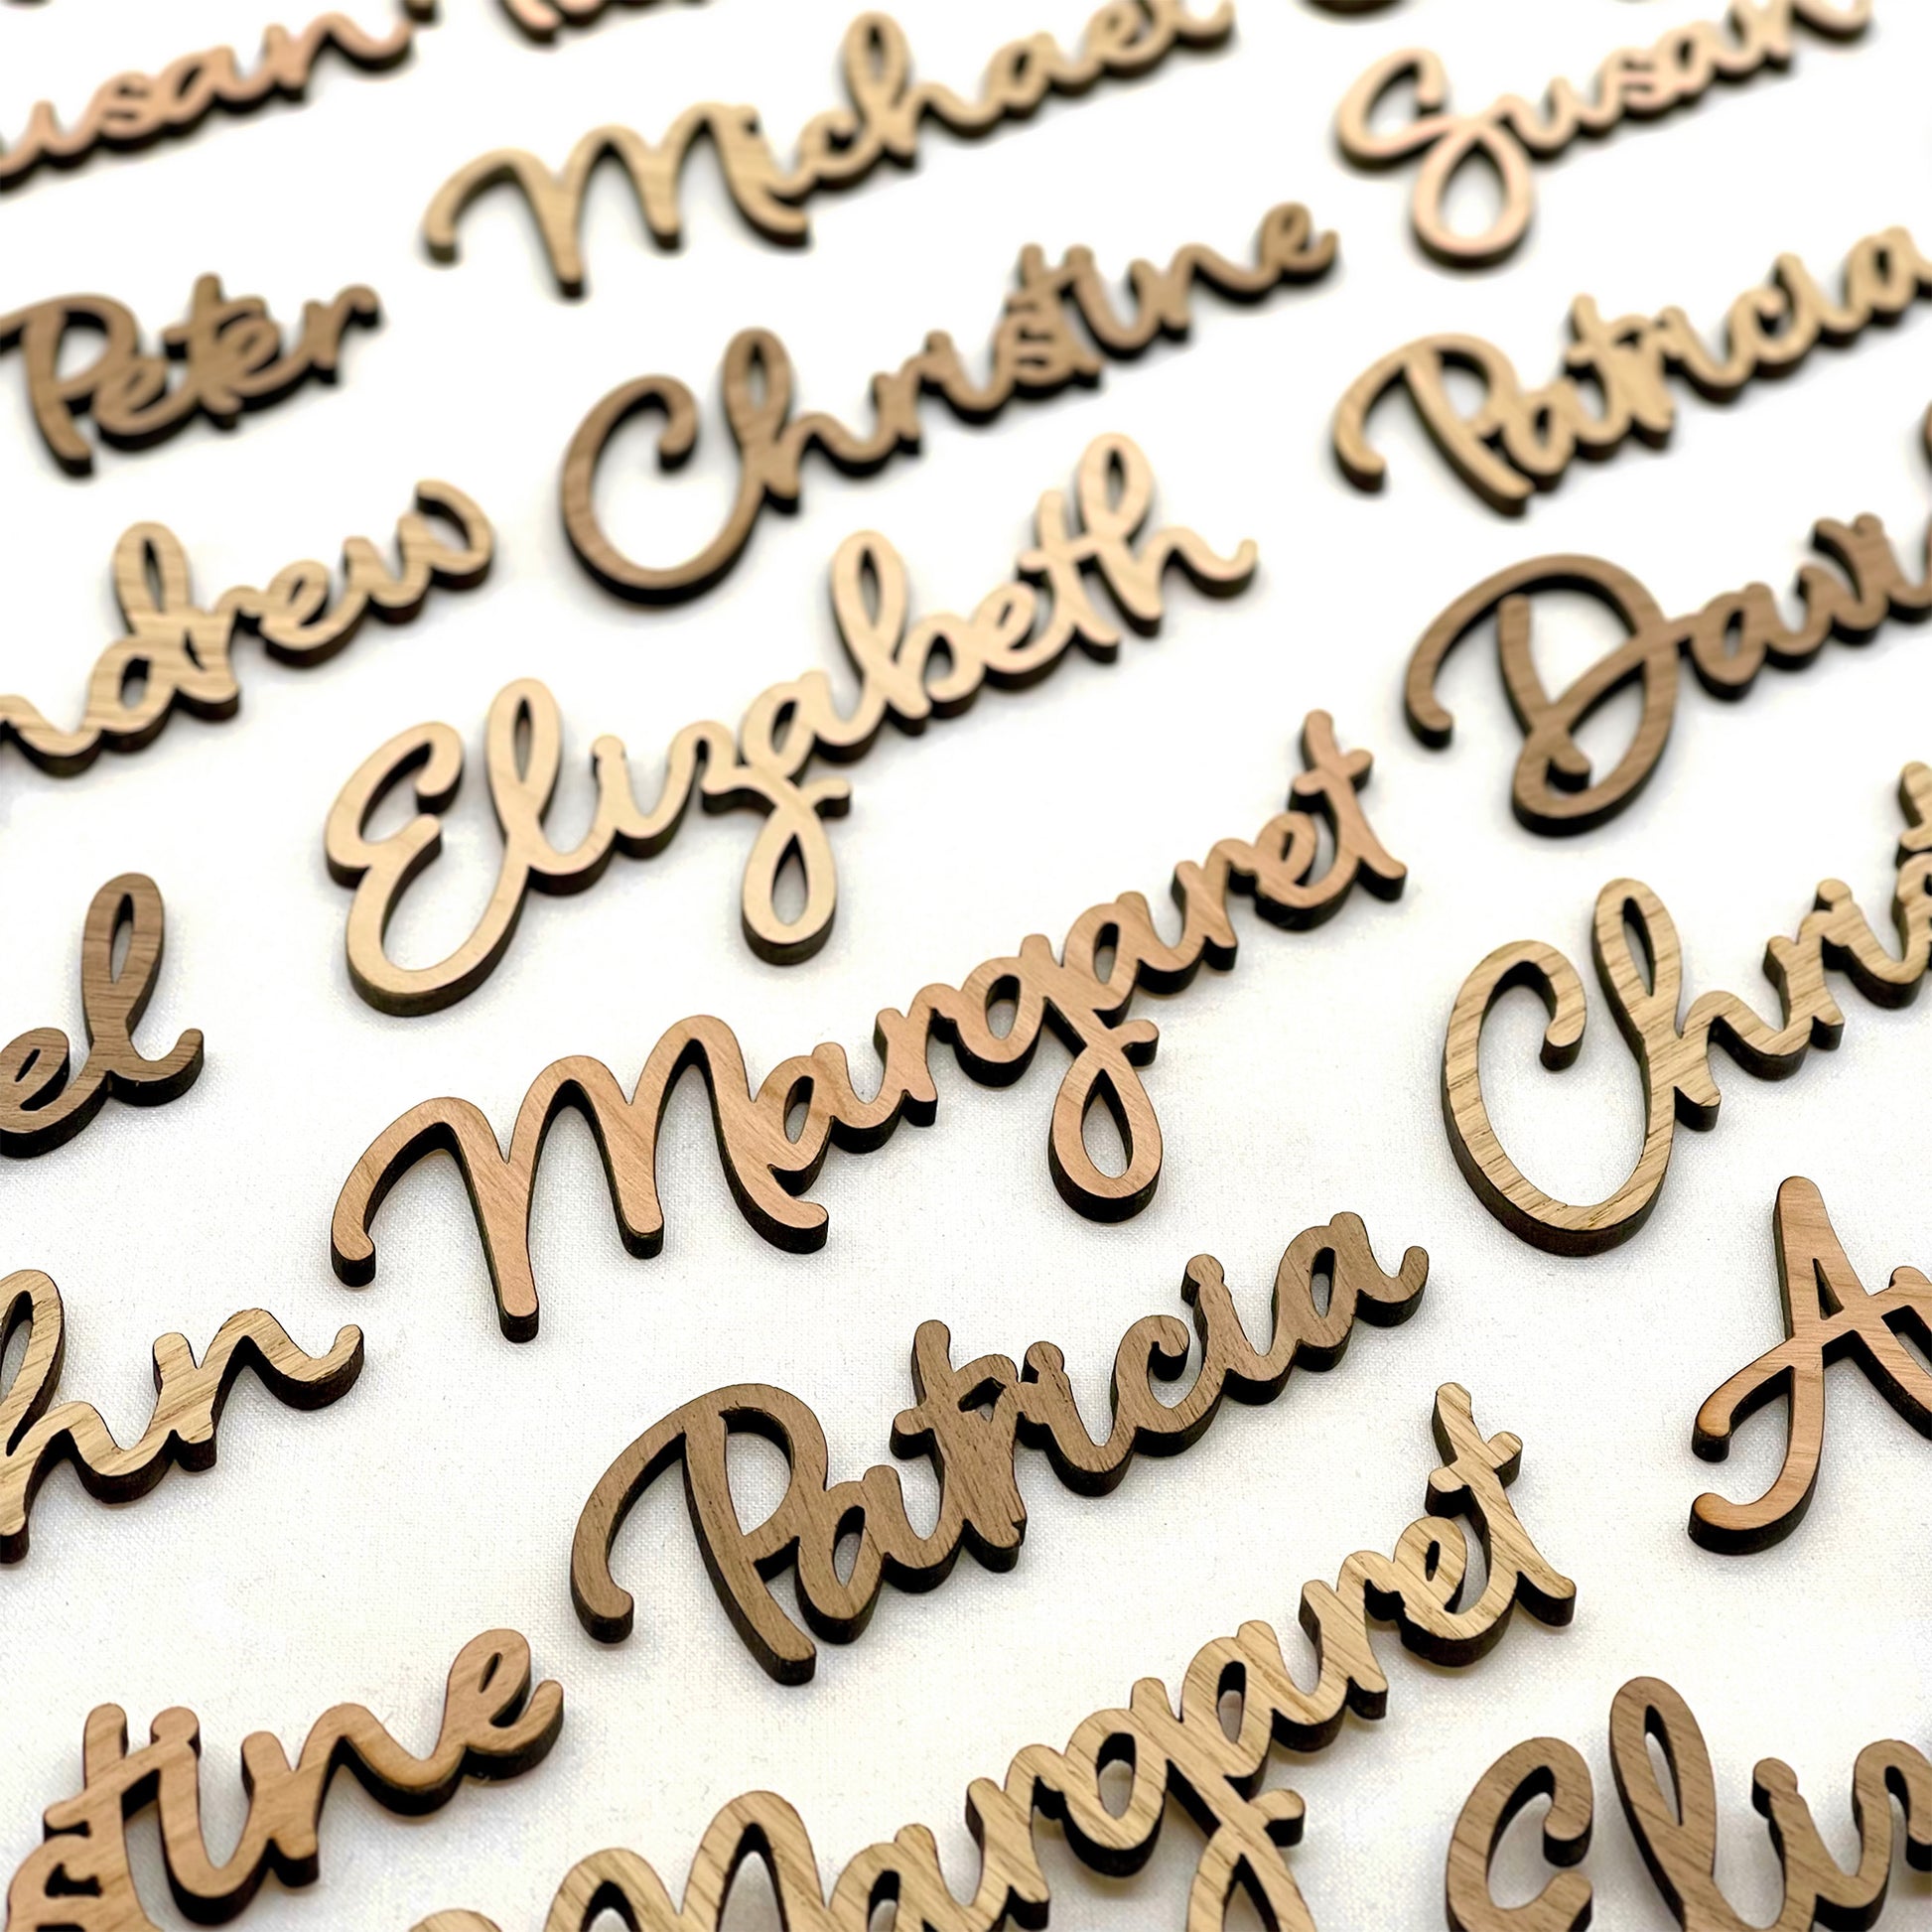 usan
Michael
Susan
Peter
Christine
Patricia
ndrew
Elizabeth
Davi
el
Margaret
Christ
hn
Patricia
A
tine
Margaret
Eliz